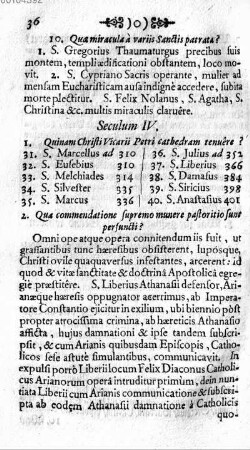 36 )o(
10. Quæ miracula à variis Sanctis patrata?
1. S. Gregorius Thaumaturgus precibus suis
montem, templi ædificationi obstantem, loco mo-
vit. 2. S. Cypriano Sacris operante, mulier ad
mensam Eucharisticam ausa indignè accedere, subita
morte plectitur. S. Felix Nolanus, S. Agatha, S.
Christina &c. multis miraculis claruêre.
Seculum IV.
1. Quinam Christi Vicarii Petri cathedram tenuêre?
31. S. Marcellus ad 310 36. S. Julius ad 352
32. S. Eusebius 310 37. S. Liberius 366
33. S. Melchiades 314 38. S. Damasus 384
34. S. Silvester 335 39. S. Siricius 398
35. S. Marcus 336 40. S. Anastasius 401
2. Qua commendatione supremo munere pastoritio sunt
perfuncti?
Omni ope atque opera connitendum iis fuit, ut
grassantibus tunc hæresibus obsisterent, luposque,
Christi ovile quaquaversus infestantes, arcerent: id
quod & vitæ sanctitate & doctrinâ Apostolicâ egre-
giè præstitêre. S. Liberius Athanasii defensor, Ari-
anæque hæresis oppugnator acerrimus, ab Impera-
tore Constantio ejicitur in exilium, ubi biennio pòst
propter atrocissima crimina, ab hæreticis Athanasio
afficta, hujus damnationi & ipse tandem subscri-
psit, & cum Arianis quibusdam Episcopis, Catho-
licos sese astutè simulantibus, communicavit. In
expulsi porrò Liberii locum Felix Diaconus Catholi-
cus Arianorum operâ intruditur primùm, dein nun-
tiata Liberii cum Arianis communicatione & subscri-
pta ab eodem Athanasii damnatione à Catholicis
quo-